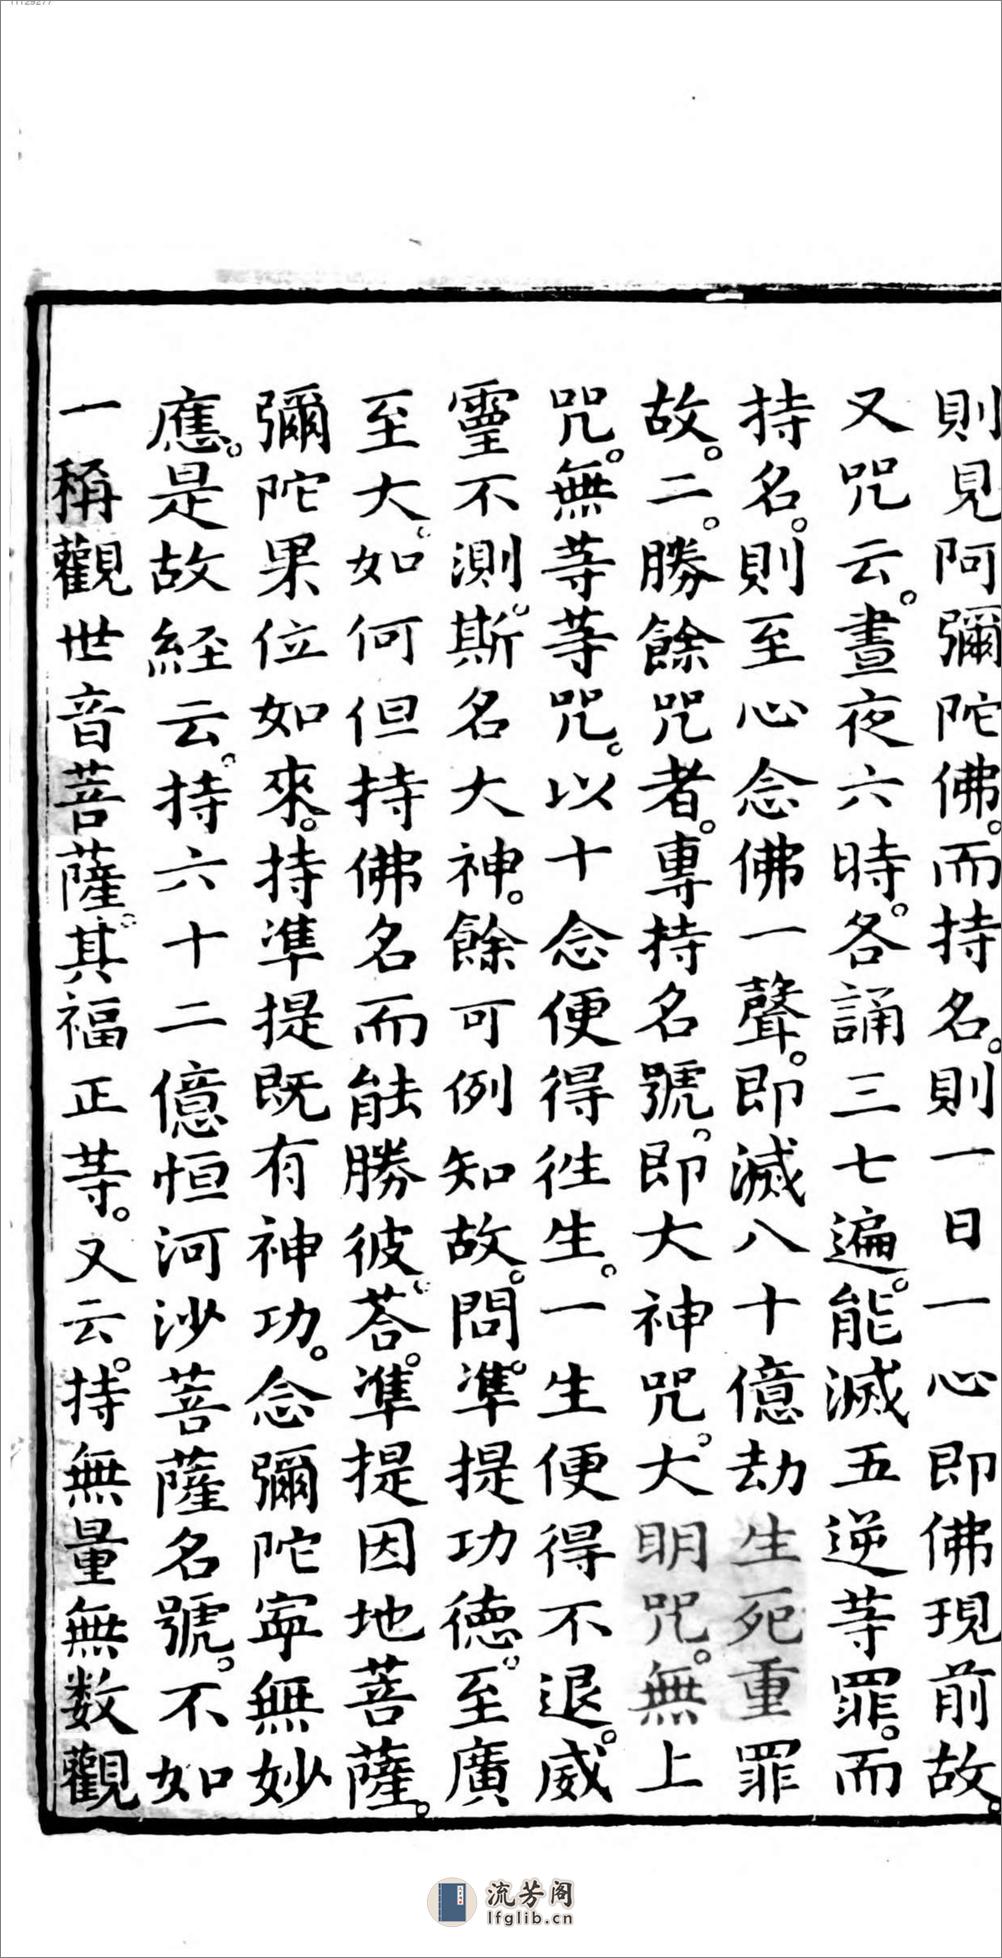 則見阿彌陀佛。而持名。則一日一心即佛現前故。
又咒云。晝夜六時。各誦三七遍。能滅五逆等罪。而
持名。則至心念佛一聲。即滅八十億劫生死重罪
故。二。勝餘咒者。專持名號。即大神咒。大明咒。無上
咒。無等等咒。以十念便得徃生。一生便得不退。威
靈不測。斯名大神。餘可例知故。問。凖提功德。至廣
至大。如何但持佛名而能勝彼。荅。凖提因地菩薩。
彌陀果位如來。持凖提既有神功。念彌陀寧無妙
應。是故經云。持六十二億恒河沙菩薩名號。不如
一稱觀世音菩薩。其福正等。又云。持無量無数觀
流芳阁
lfglib.cn